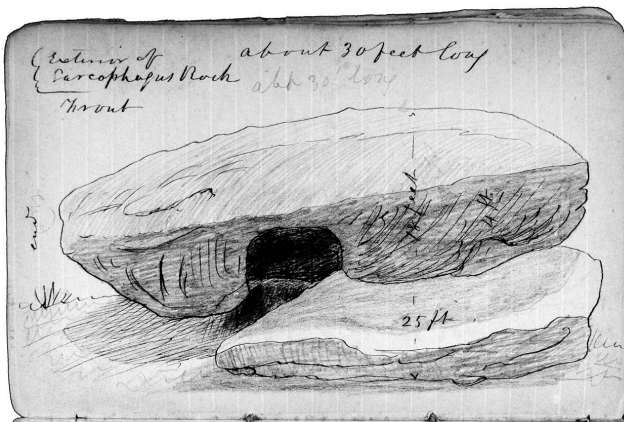 Exterior of
Sarcophagus Rock
Front
about 30 feet long
abt 30' long
end
feet
25 ft